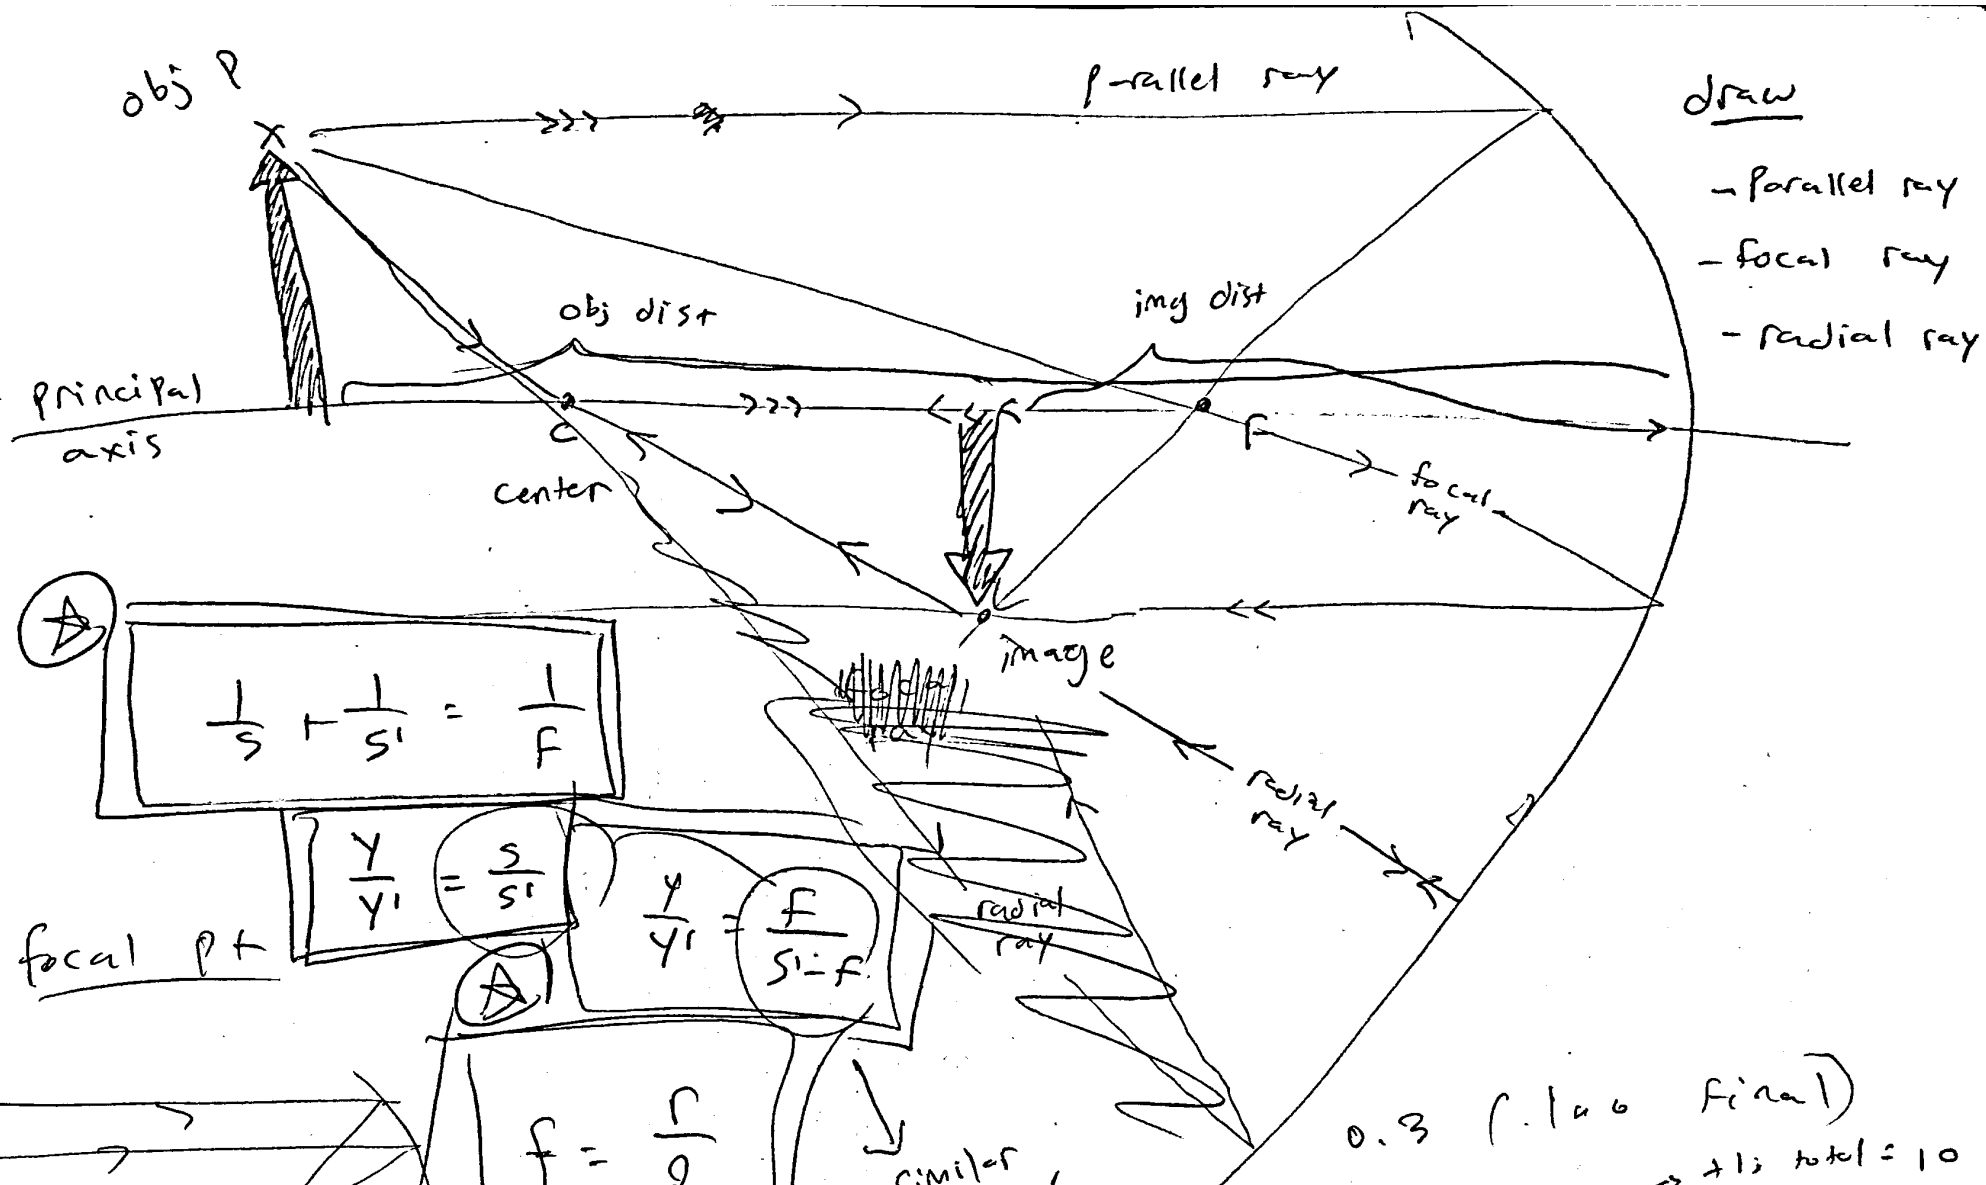 obj P
X
parallel ray
draw
- Parallel ray
- focal ray
- radial ray
obj dist
img dist
principal
axis
C
F
center
focal
ray
image
1/S + 1/S' = 1/F
radial
ray
Y/Y' = S/S'
Y/Y' = F/S'-F
radial
ray
focal pt
f = r/2
similar
0.3
final)
total = 10